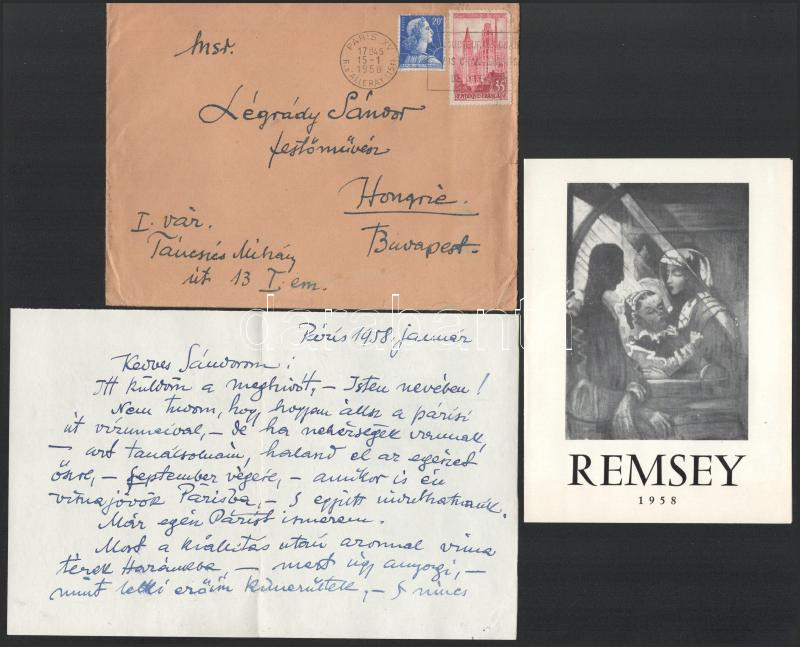 Msr.
Légrády Sándor
festőművész
Hongrie.
Budapest.
I. vár.
Táncsics Mihály
út 13 I. em.
PARIS XV
17H45
15-1
1958
R. D'ALLERAY (15E)
20F
35F
darabanth
Páris 1958. január
Kedves Sándorom!
Itt küldöm a meghívót, – Isten nevében!
Nem tudom, hogy hogyan állsz a párisi
út vízumaival, – de ha nehézségek vannak,
– azt tanácsolnám, halaszd el az egészet
őszre, – September végére, – amikor is én
visszajövök Párisba, – s együtt indulhatnánk.
Már egész Párist ismerem.
Most a kiállítás után azonnal vissza
térek Hazámba, – mert úgy anyagi, –
mint lelki erőim kimerültek, – s nincs
REMSEY
1958